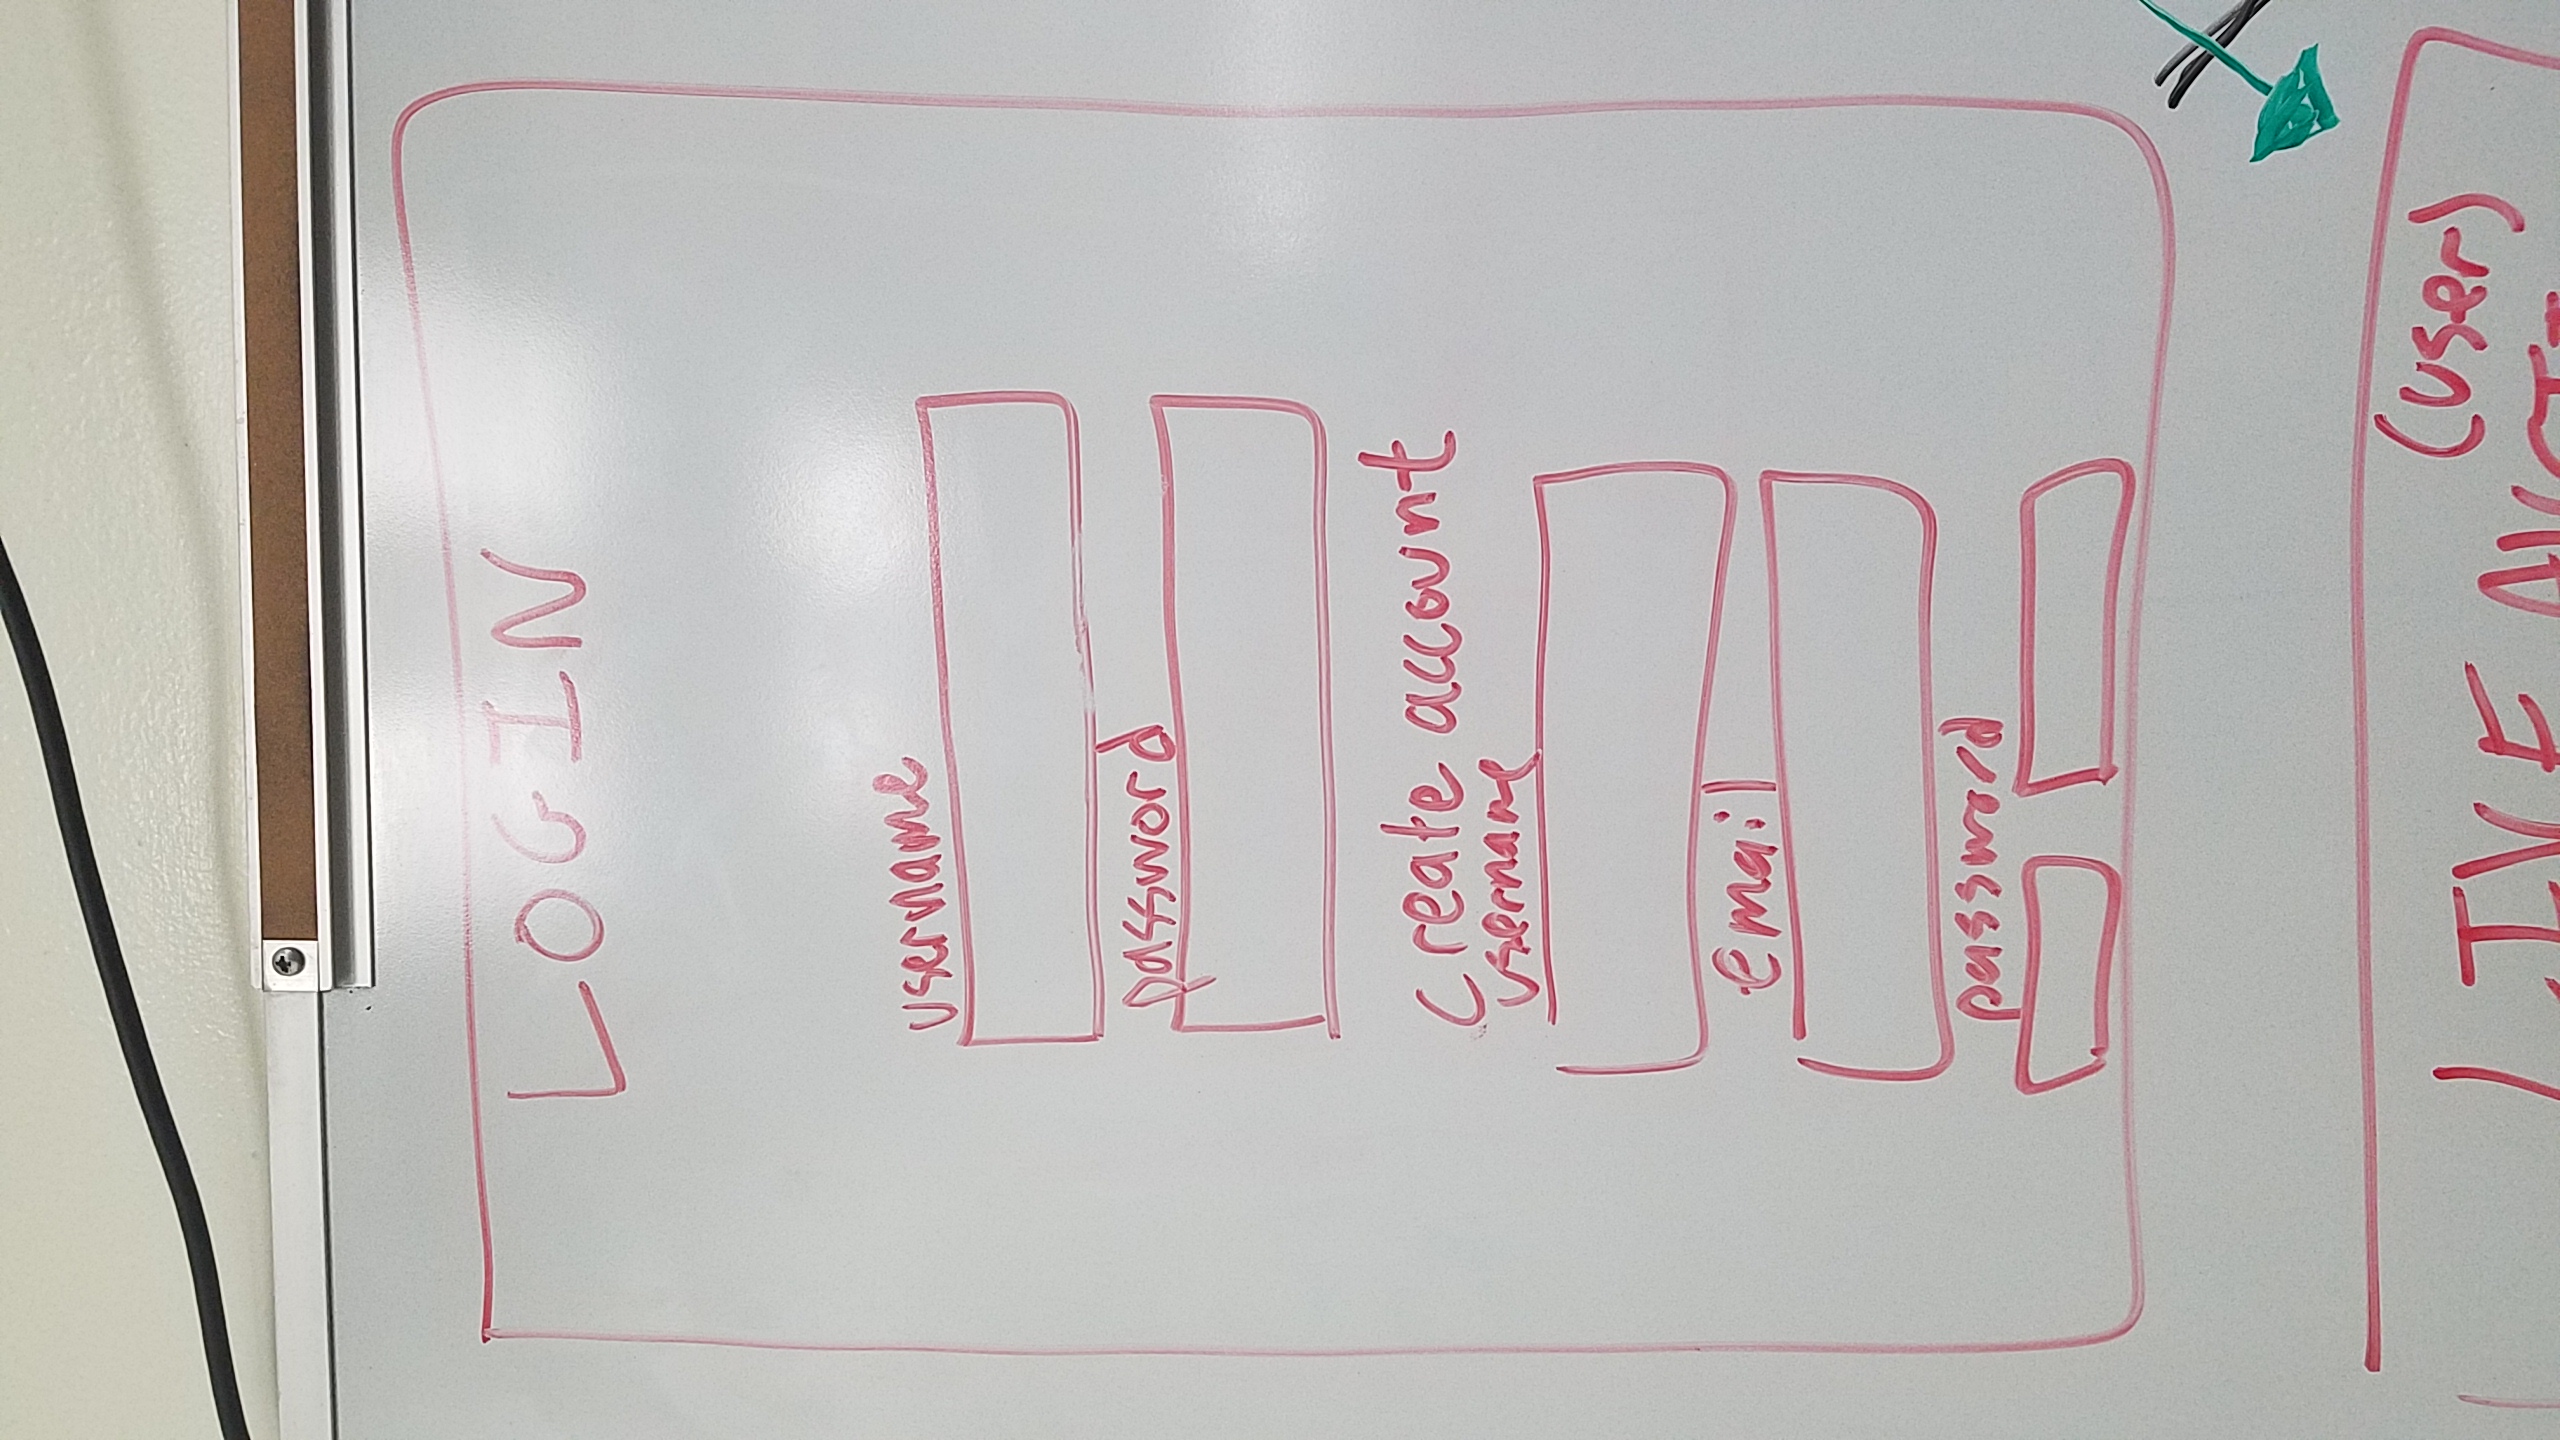 LOGIN
username
password
create account
username
email
password
(user)
LIVE